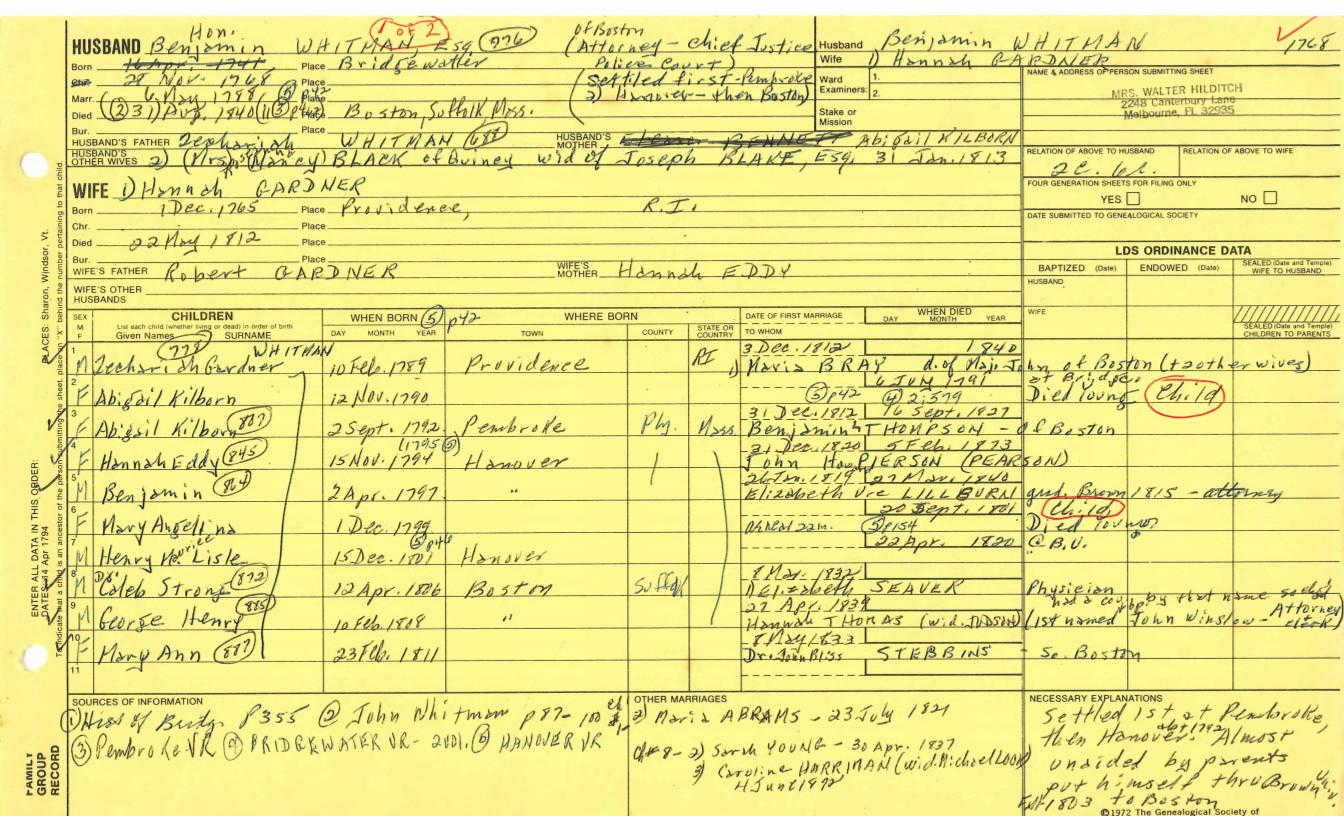 Hon. 1 of 2
HUSBAND Benjamin WHITMAN Esq. 776
of Boston
(Attorney - chief Justice
Police Court)
(Settled first - Pembroke
2) Hanover - then Boston)
Born 16 Apr. 1741 Place Bridgewater
Chr. 28 Nov. 1768 Place
Marr. 6 May 1788 5 p42 Place
Died (2) 31) Aug. 1840 (3 p42) Place Boston, Suffolk, Mass.
Bur. Place
HUSBAND'S FATHER Zechariah WHITMAN 688 HUSBAND'S MOTHER BENNETT Abigail KILBORN
HUSBAND'S OTHER WIVES 2) (Mrs. (Nancy) BLACK of Quincy wid of Joseph BLAKE, ESQ, 31 Jan. 1813
WIFE 1) Hannah GARDNER
Born 1 Dec. 1765 Place Providence, R.I.
Chr. Place
Died 22 May 1812 Place
Bur. Place
WIFE'S FATHER Robert GARDNER WIFE'S MOTHER Hannah EDDY
WIFE'S OTHER HUSBANDS
Husband Benjamin WHITMAN 1768
Wife 1) Hannah GARDNER
Ward Examiners: 1.
2.
Stake or Mission
NAME & ADDRESS OF PERSON SUBMITTING SHEET
MRS. WALTER HILDITCH
2248 Canterbury Lane
Melbourne, FL 32935
RELATION OF ABOVE TO HUSBAND RELATION OF ABOVE TO WIFE
2c. 6r.
FOUR GENERATION SHEETS FOR FILING ONLY
YES NO
DATE SUBMITTED TO GENEALOGICAL SOCIETY
LDS ORDINANCE DATA
BAPTIZED (Date) ENDOWED (Date) SEALED (Date and Temple) WIFE TO HUSBAND
HUSBAND
WIFE
SEALED (Date and Temple) CHILDREN TO PARENTS
SEX M F CHILDREN WHEN BORN 5 p42 WHERE BORN DATE OF FIRST MARRIAGE WHEN DIED
List each child (whether living or dead) in order of birth
Given Names SURNAME DAY MONTH YEAR TOWN COUNTY STATE OR COUNTRY TO WHOM DAY MONTH YEAR
778 WHITMAN 3 Dec. 1812 1840
1 M Zechariah Gardner 10 Feb. 1789 Providence RI 1) Maria BRAY d. of Maj. John of Boston (+2 other wives)
6 July 1791 at Bridge.
2 F Abigail Kilborn 12 Nov. 1790 5 p42 4 2:579 Died Young Child
31 Dec. 1812 16 Sept. 1827
3 F Abigail Kilborn 837 2 Sept. 1792 Pembroke Ply. Mass Benjamin THOMPSON - of Boston
(1795 5) 21 Dec. 1820 5 Feb. 1873
4 F Hannah Eddy 845 15 Nov. 1794 Hanover John PIERSON (PEARSON)
26 Jan. 1819 27 Mar. 1840
5 M Benjamin 864 2 Apr. 1797 " Elizabeth LILLBURN grad. Brown 1815 - attorney
20 Sept. 1801 Child
6 F Mary Angelina 1 Dec. 1799 22m. 5 p154 Died young
5 p46 22 Apr. 1820
7 M Henry Lisle 15 Dec. 1801 Hanover @ B.U.
8 Mar. 1832
8 M Dr. Caleb Strong 872 12 Apr. 1806 Boston Suffolk Elizabeth SEAVER Physician
27 Apr. 1839 had a by that name Attorney
9 M George Henry 885 10 Feb. 1808 " Hannah THOMAS (wid. JUDSON) (1st named John Winslow - clerk)
8 May 1833
10 F Mary Ann 887 23 Feb. 1811 Dr. John Bliss STEBBINS So. Boston
11
SOURCES OF INFORMATION
1) Hist of Bridg. P355 2 John Whitman p 87-100
3 Pembroke VR 4 BRIDGEWATER VR - 2vol. 5 HANOVER VR
OTHER MARRIAGES
ch #1 2) Maria ABRAMS - 23 July 1821
Ch #8 - 2) Sarah YOUNG - 30 Apr. 1837
3) Caroline HARRIMAN (wid. Michael LOOK)
NECESSARY EXPLANATIONS
Settled 1st at Pembroke,
then Hanover. abt 1792 Almost
unaided by parents
put himself thru Brown Univ.
1803 to Boston
©1972 The Genealogical Society of
FAMILY GROUP RECORD
ENTER ALL DATA IN THIS ORDER:
DATES: 14 Apr 1794
PLACES: Sharon, Windsor, Vt.
To indicate that a child is an ancestor of the person submitting the sheet, place an "X" behind the number pertaining to that child.